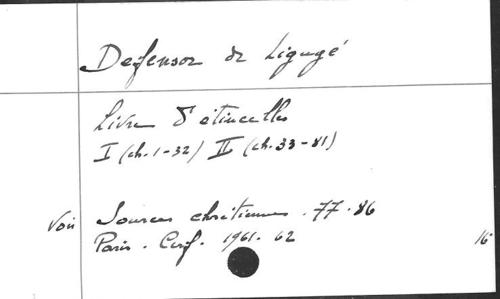 Defensor de Ligugé
Livre d'étincelles
I (ch. 1-32) II (ch. 33-81)
Voir Sources chrétiennes. 77. 86
Paris. Cerf. 1961. 62
16